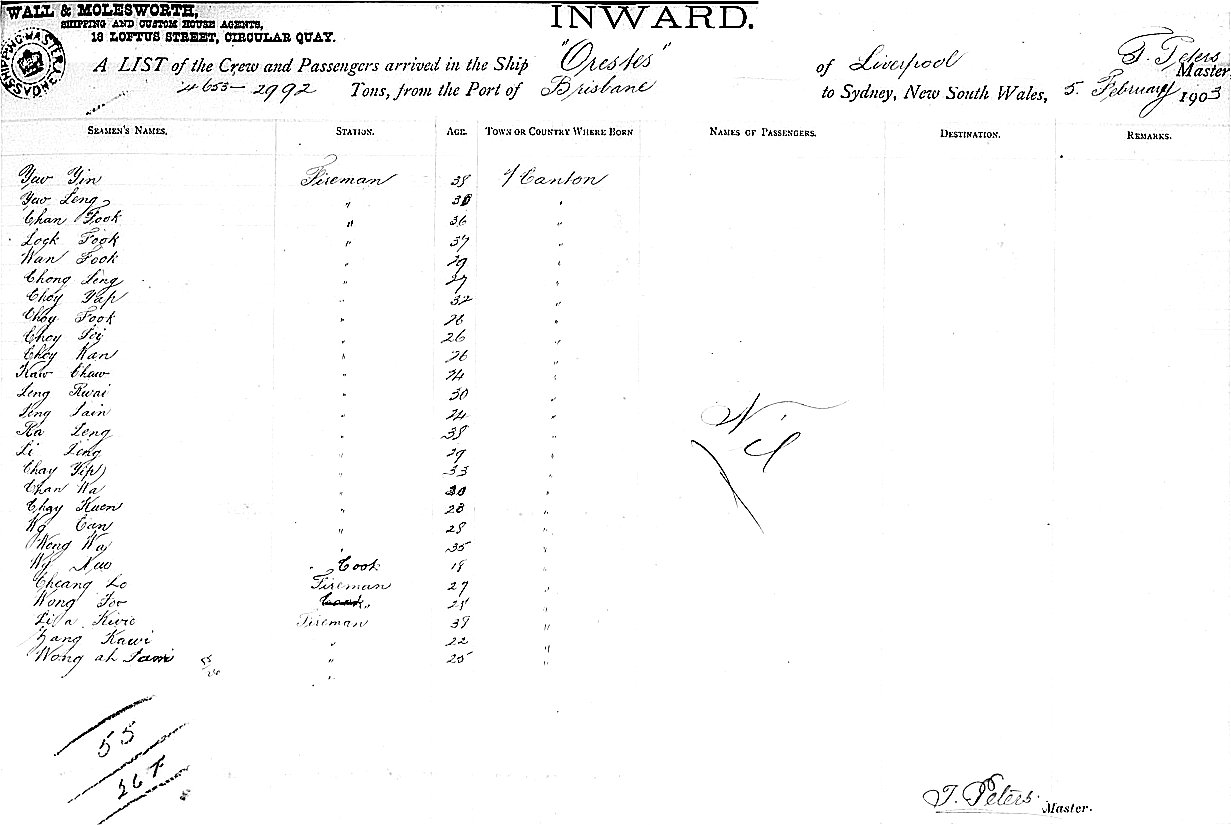 WALL & MOLESWORTH,
SHIPPING AND CUSTOM HOUSE AGENTS,
18 LOFTUS STREET, CIRCULAR QUAY.
INWARD.
SHIPPING MASTER SYDNEY
A LIST of the Crew and Passengers arrived in the Ship "Orestes" of Liverpool T. Peters Master
4653 - 2992 Tons, from the Port of Brisbane to Sydney, New South Wales, 5 February 1903
SEAMEN'S NAMES. STATION. AGE. TOWN OR COUNTRY WHERE BORN NAMES OF PASSENGERS. DESTINATION. REMARKS.
Yaw Yin Fireman 38 Canton
Yaw Leng "
Chan Fook " 36 "
Lock Fook " 37 "
Wan Fook " 29 "
Chong Leng " 27 "
Choy Yap " 32 "
Choy Fook " 26 "
Choy " 26 "
Choy Kan " 26 "
Kaw Chaw " 24 "
Leng Kwai " 30 "
Leng " 24 "
Ka Leng " 38 "
Li Leng " 29 "
Chay Yip " 33 "
Chan Wa " 30 "
Chay Kuen " 28 "
Wg " 28 "
Wong Wa " 35 "
Cook 18 "
Cheang Lo Fireman 27 "
Wong Foo " 28 "
Fireman 38 "
Kawi " 22 "
Wong ah " 25 "
Nil
55
26 F
T. Peters. Master.